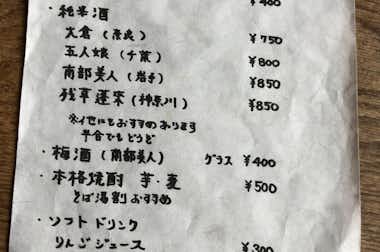 ¥400
・純米酒
大倉(奈良) ¥750
五人娘(千葉) ¥800
南部美人(岩手) ¥850
残草蓬莱(神奈川) ¥850
※イセにもおすすめあります
平合でもどうぞ
・梅酒(南部美人) グラス ¥400
・本格焼酎 芋・麦 ¥500
そば湯割おすすめ
・ソフトドリンク
りんごジュース ¥300